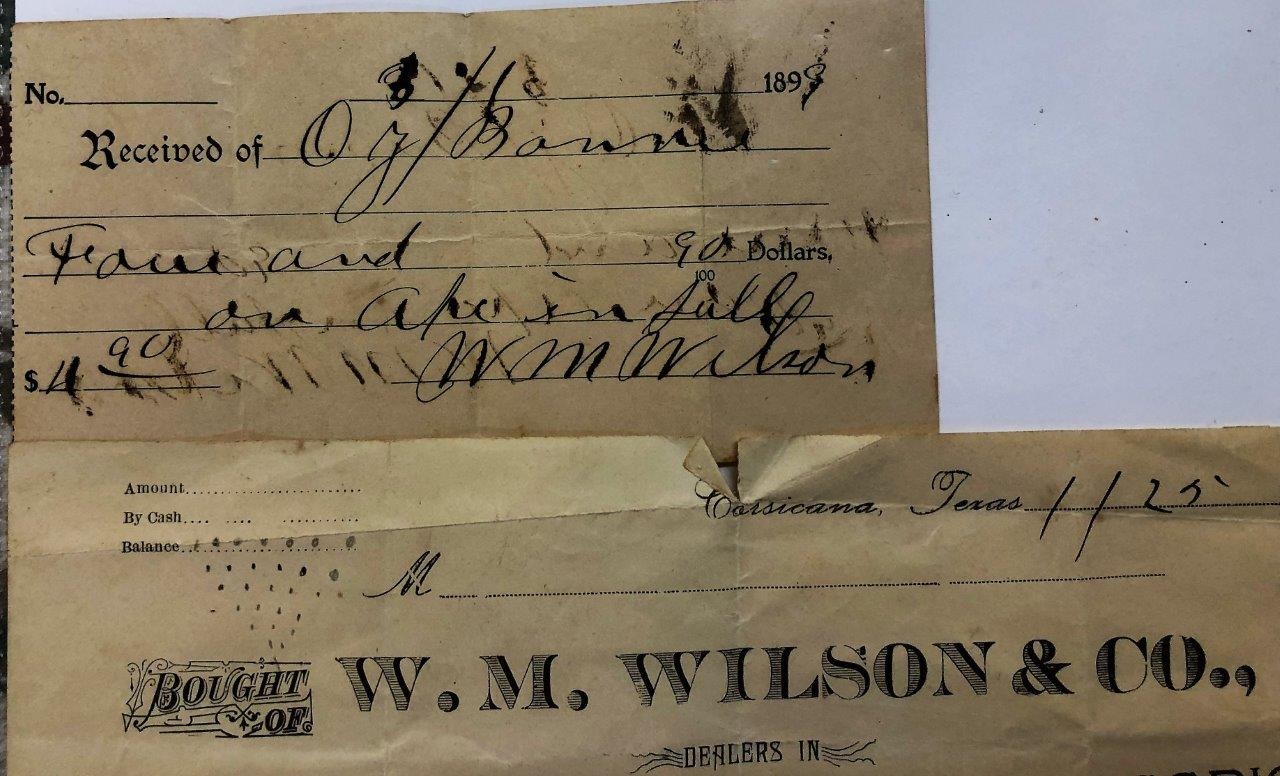 No. 3/1 1898
Received of O J Bonner
Four and 90/100 Dollars,
on a/c in full
$4 90 W M Wilson
Amount
By Cash
Balance
Corsicana, Texas 1/25
M
BOUGHT OF. W. M. WILSON & CO.,
DEALERS IN